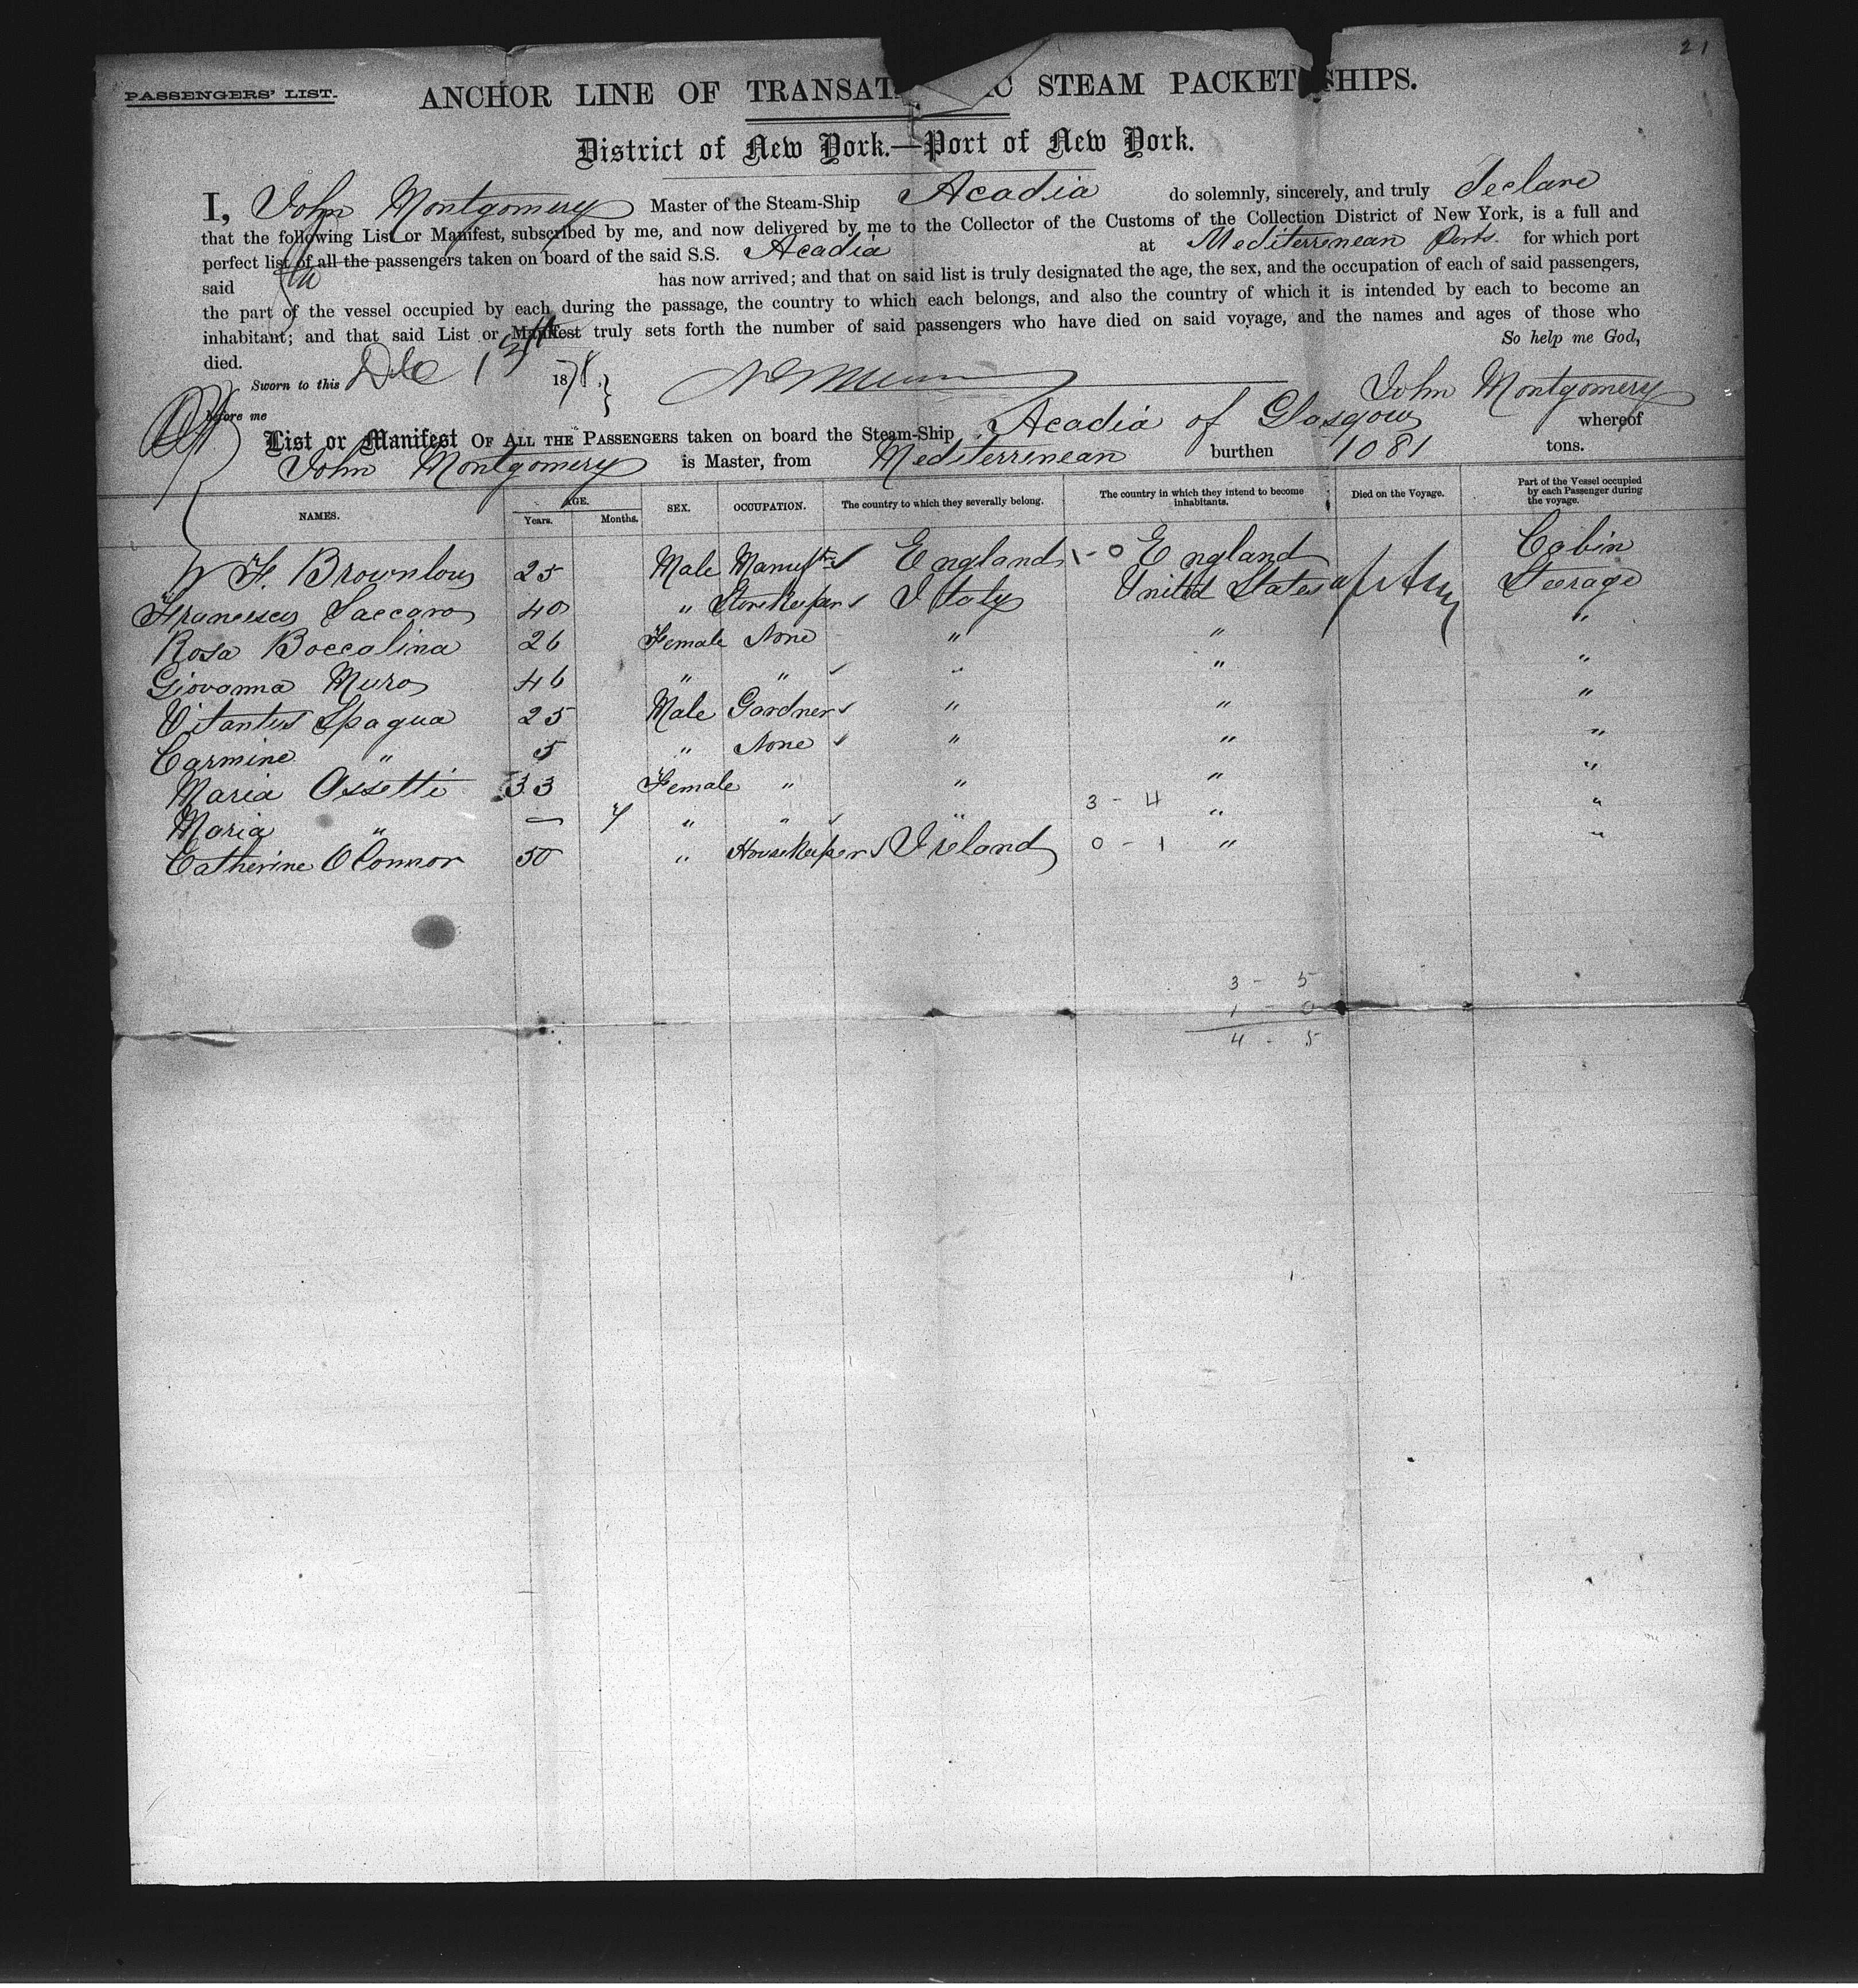 21
PASSENGERS' LIST.
ANCHOR LINE OF TRANSAT C STEAM PACKET SHIPS.
District of New York.—Port of New York.
I, John Montgomery Master of the Steam-Ship Acadia do solemnly, sincerely, and truly declare
that the following List or Manifest, subscribed by me, and now delivered by me to the Collector of the Customs of the Collection District of New York, is a full and
perfect list of all the passengers taken on board of the said S.S. Acadia at Mediterrenean Ports. for which port
said has now arrived; and that on said list is truly designated the age, the sex, and the occupation of each of said passengers,
the part of the vessel occupied by each during the passage, the country to which each belongs, and also the country of which it is intended by each to become an
inhabitant; and that said List or Manifest truly sets forth the number of said passengers who have died on said voyage, and the names and ages of those who
died. So help me God,
Sworn to this Dec 1878.
before me John Montgomery
List or Manifest OF ALL THE PASSENGERS taken on board the Steam-Ship Acadia of Glasgow whereof
John Montgomery is Master, from Mediterrenean burthen 1081 tons.
NAMES. AGE. Years. Months. SEX. OCCUPATION. The country to which they severally belong. The country in which they intend to become inhabitants. Died on the Voyage. Part of the Vessel occupied by each Passenger during the voyage.
W F. Brownlow 25 Male England 1 - 0 England Cabin
Francesco Saccaro 40 " Storekeeper Italy United States Steerage
Rosa Boccalina 26 Female None " " "
Giovanna Muro 46 " " " " "
Vitantus Spagua 25 Male Gardner " " "
Carmine " 5 " None " " "
Maria Ossetti 33 Female " " " "
Maria " — " " " 3 - 4 " "
Catherine OConnor 50 " Housekeeper Ireland 0 - 1 " "
3 - 5
1 - 0
4 - 5